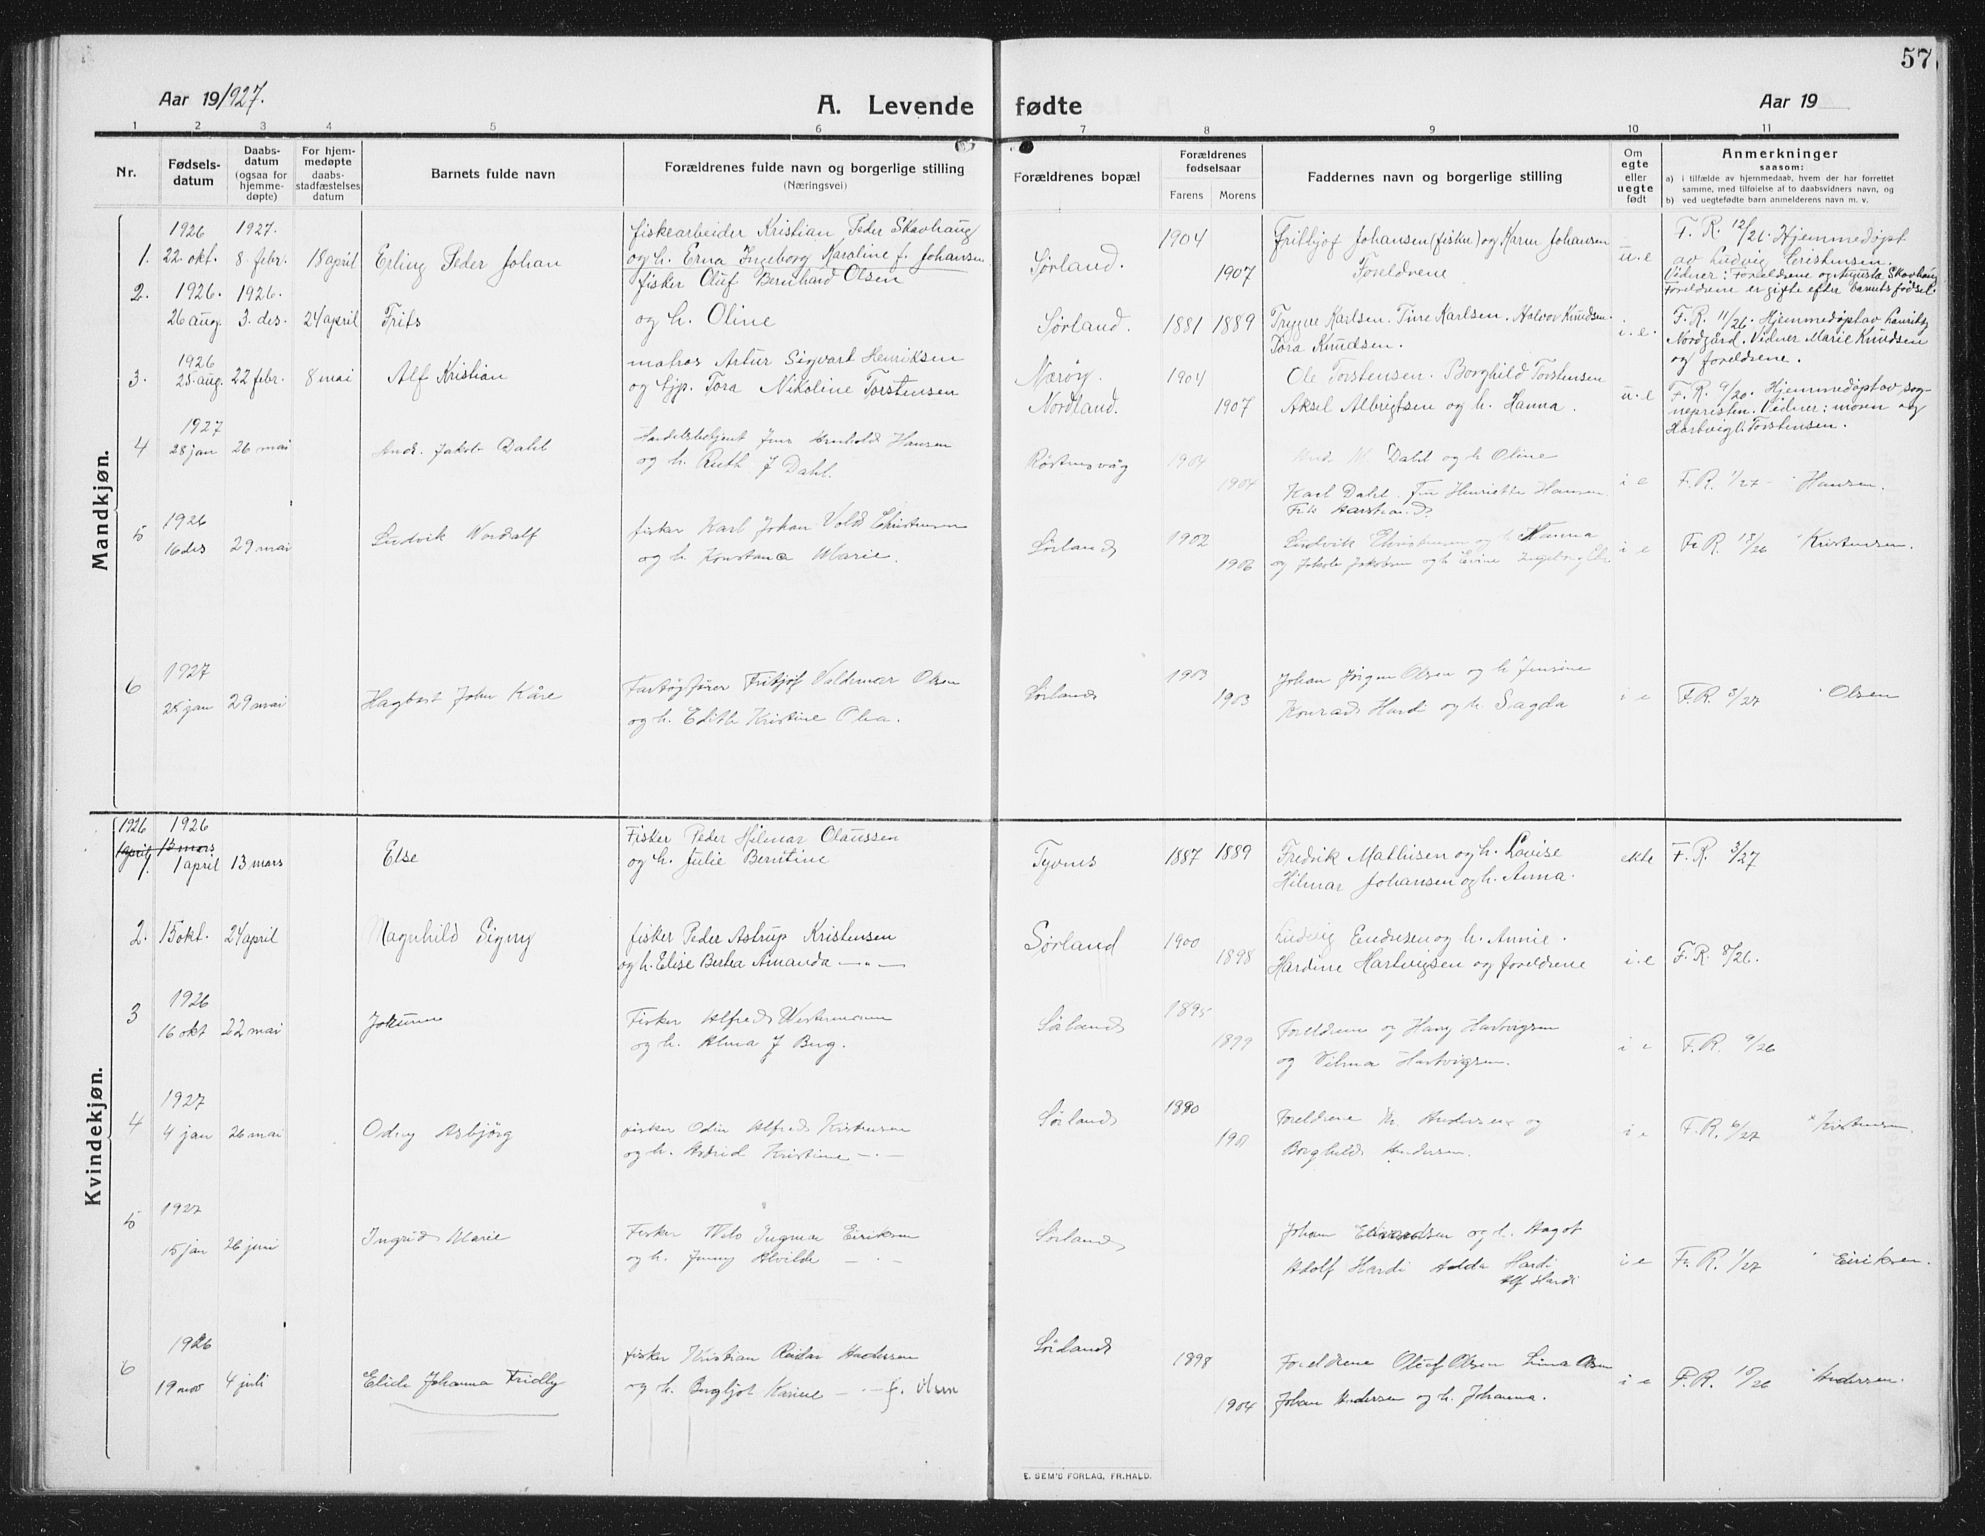 57
Aar 19/927.
A. Levende fødte
Aar 19
1 2 3 4 5 6 7 8 9 10 11
Nr.
Fødsels-
datum
Daabs-
datum
(ogsaa for
hjemme-
døpte)
For hjem-
medøpte
daabs-
stadfæstelses
datum
Barnets fulde navn
Forældrenes fulde navn og borgerlige stilling
(Næringsvei)
Forældrenes bopæl
Forældrenes
fødselsaar
Farens Morens
Faddernes navn og borgerlige stilling
Om
egte
eller
uegte
født
Anmerkninger
saasom:
a) i tilfælde av hjemmedaab, hvem der har forrettet
samme, med tilføielse af to daabsvidners navn, og
b) ved uegtefødte barn anmelderens navn m. v.
Mandkjøn.
1926 1927. fiskearbeider Kristian Peder Skavhaug 1904 Frithjof Johansen (fisker) og Karen Johansen F. R. 12/26. Hjemmedøpt
1. 22. okt. 8 febr. 18 april Erling Peder Johan og h. Erna Ingeborg Karoline f. Johansen Sørland. 1907 Foreldrene u.e av Ludvig Cristensen.
Vidner: Foreldrene og Augusta Skavhaug
Foreldrene er gifte efter barnets fødsel.
2. 1926. 1926. fisker Oluf Bernhard Olsen
26 aug. 3. des. 24 april Frits og h. Oline Sørland. 1881 1889 Trygve Karlsen. Tine Karlsen. Halvor Knudsen. i. e. F. R. 11/26. Hjemmedøpt av Lauritz
Tora Knudsen. Nordgård. Vidner Marie Knudsen
og foreldrene.
1926 matros Artur Sigvart Henriksen
3. 25. aug. 22 febr. 8 mai Alf Kristian og Pgp. Tora Nikoline Torstensen Nærøy. 1904 Ole Torstensen. Borghild Torstensen u.e F. R. 9/20. Hjemmedøpt av sog-
Nordland. 1907 Aksel Albrigtsen og h. Hanna. nepresten. Vidner: moren og
Hartvig Torstensen.
1927
4 28 jan 26 mai Jakob Dahl Handelsbetjent Hansen
og h. Ruth J Dahl. Røstnesvåg 1904 M. Dahl og h Oline
1904 Karl Dahl. Henriette Hansen i e F. R. 1/27 - Hansen.
1926
5 16 des 29 mai Ludvik Nordalf fisker Karl Johan Vold Christensen
og h. Konstanca Marie. Sørland 1902 Ludvik Christensen og h Hanna i e F. R. /26 Kristensen.
1906 og Jakob Jakobsen og h Ingeborg
1927
6 25 jan 29 mai Hagbart John Kåre Fartøyfører Fritjof Valdemar Olsen
og h. Edith Kristine Olea. Sørland 1903 Johan Jørgen Olsen og h Jensine
1903 Konrad Hardi og h Sagda i e F. R. 3/27 Olsen
Kvindekjøn.
1926 1926 Fisker Peder Hilmar Olaussen
1april 13 mars
1. 1 april 13 mars Else og h. Julie Berntine Tyvnes 1887 1889 Fredrik Mathisen og h. Lovise ekte F. R. 3/27
Hilmar Johansen og h. Anna.
2. 15 okt. 24 april Magnhild Signy fisker Peder Astrup Kristensen Sørland 1900 Ludvig Endresen og h. Annie.
og h. Elise Bertea Amanda —„— 1898 Hardine Hartvigsen og foreldrene i. e F. R. 8/26.
1926
3 16 okt 22 mai Johanne Fisker Alfred Westermann
og h. Alma J Berg. Sørland 1895 Foreldrene og Harry Hartvigsen
1899 og Vilma Hartvigsen. i e F. R. 9/26
1927
4 4 jan 26 mai Odny Asbjörg fisker Odin Alfred Kristensen
og h. Astrid Kristine —„— Sørland 1890 Foreldrene M. Andersen og
1901 Borghild Andersen. i e F. R. 6/27 Kristensen.
1927
5 15 jan 26 juni Ingrid Marie Fisker Nils Ingmar Eiriksen
og h. Jenny Alvilde —„— Sørland Johan Edvardsen og h. Aagot
Adolf Hardi Adda Hardi i e F. R. 1/27 Eiriksen.
Alf Hardi
1926
6 19 nov 4 juli Elida Johanna Fridly fisker Kristian Reidar Andersen
og h. Bergljot Karine —„— f. Olsen Sørland 1898 Foreldrene Oluf Olsen Lina Olsen
1904 Johan Andersen og h. Johanna. i e F. R. 10/26 Andersen.
E. SEM'S FORLAG, FR.HALD.